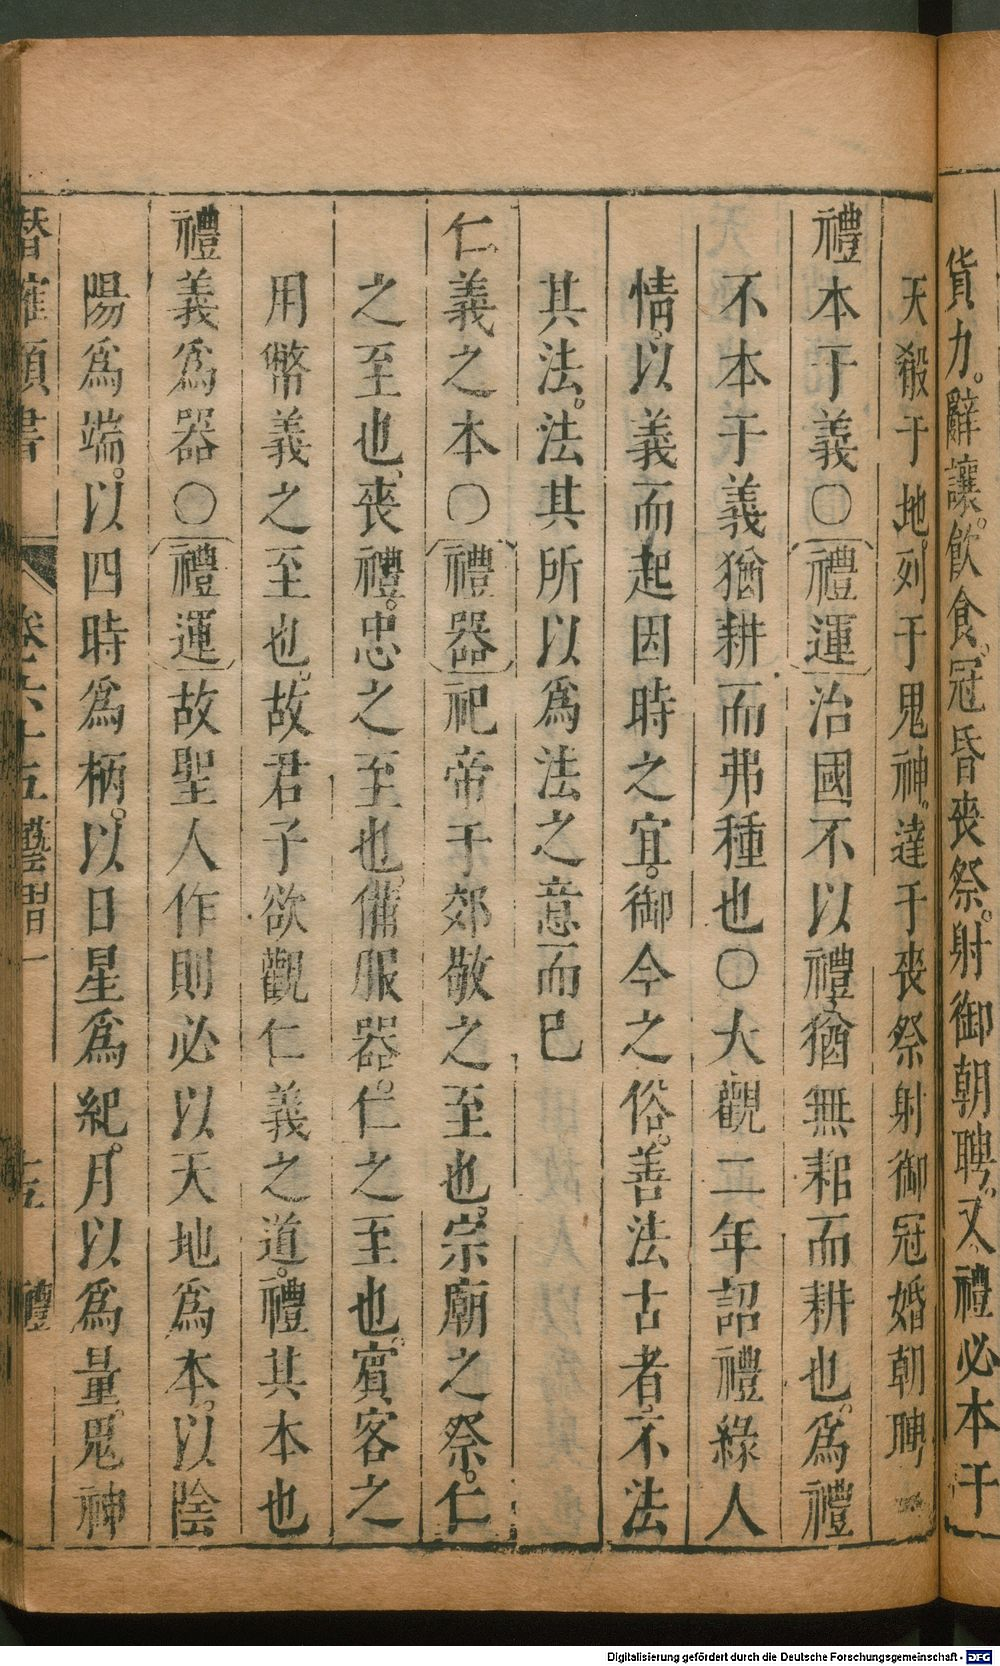 貨力。辭讓。飲食。冠昏喪祭。射御朝聘。又禮必本于
天殽于地。列于鬼神。達于喪祭射御冠婚朝聘
禮本于義○禮運治國不以禮猶無耜而耕也。爲禮
不本于義猶耕而弗種也○大觀二年詔禮緣人
情。以義而起因時之宜。御今之俗。善法古者。不法
其法。法其所以爲法之意而已
仁義之本○禮器祀帝于郊敬之至也。宗廟之祭。仁
之至也、喪禮。忠之至也。備服器。仁之至也。賓客之
用幣義之至也。故君子欲觀仁義之道。禮其本也
禮義爲器○禮運故聖人作則必以天地爲本。以陰
陽爲端。以四時爲柄。以日星爲紀。月以爲量。鬼神
潛確類書 卷六十五 藝習一 十五 禮
Digitalisierung gefördert durch die Deutsche Forschungsgemeinschaft - DFG